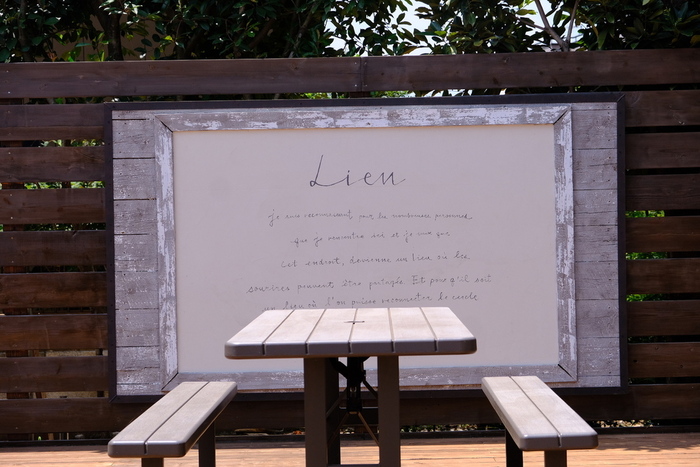 Lien
Je suis reconnaissant pour les nombreuses personnes
que je rencontre ici et je veux que
cet endroit, devienne un lieu où les
sourires peuvent être partagés. Et pour qu'il soit
un lieu où l'on puisse rencontrer le cercle